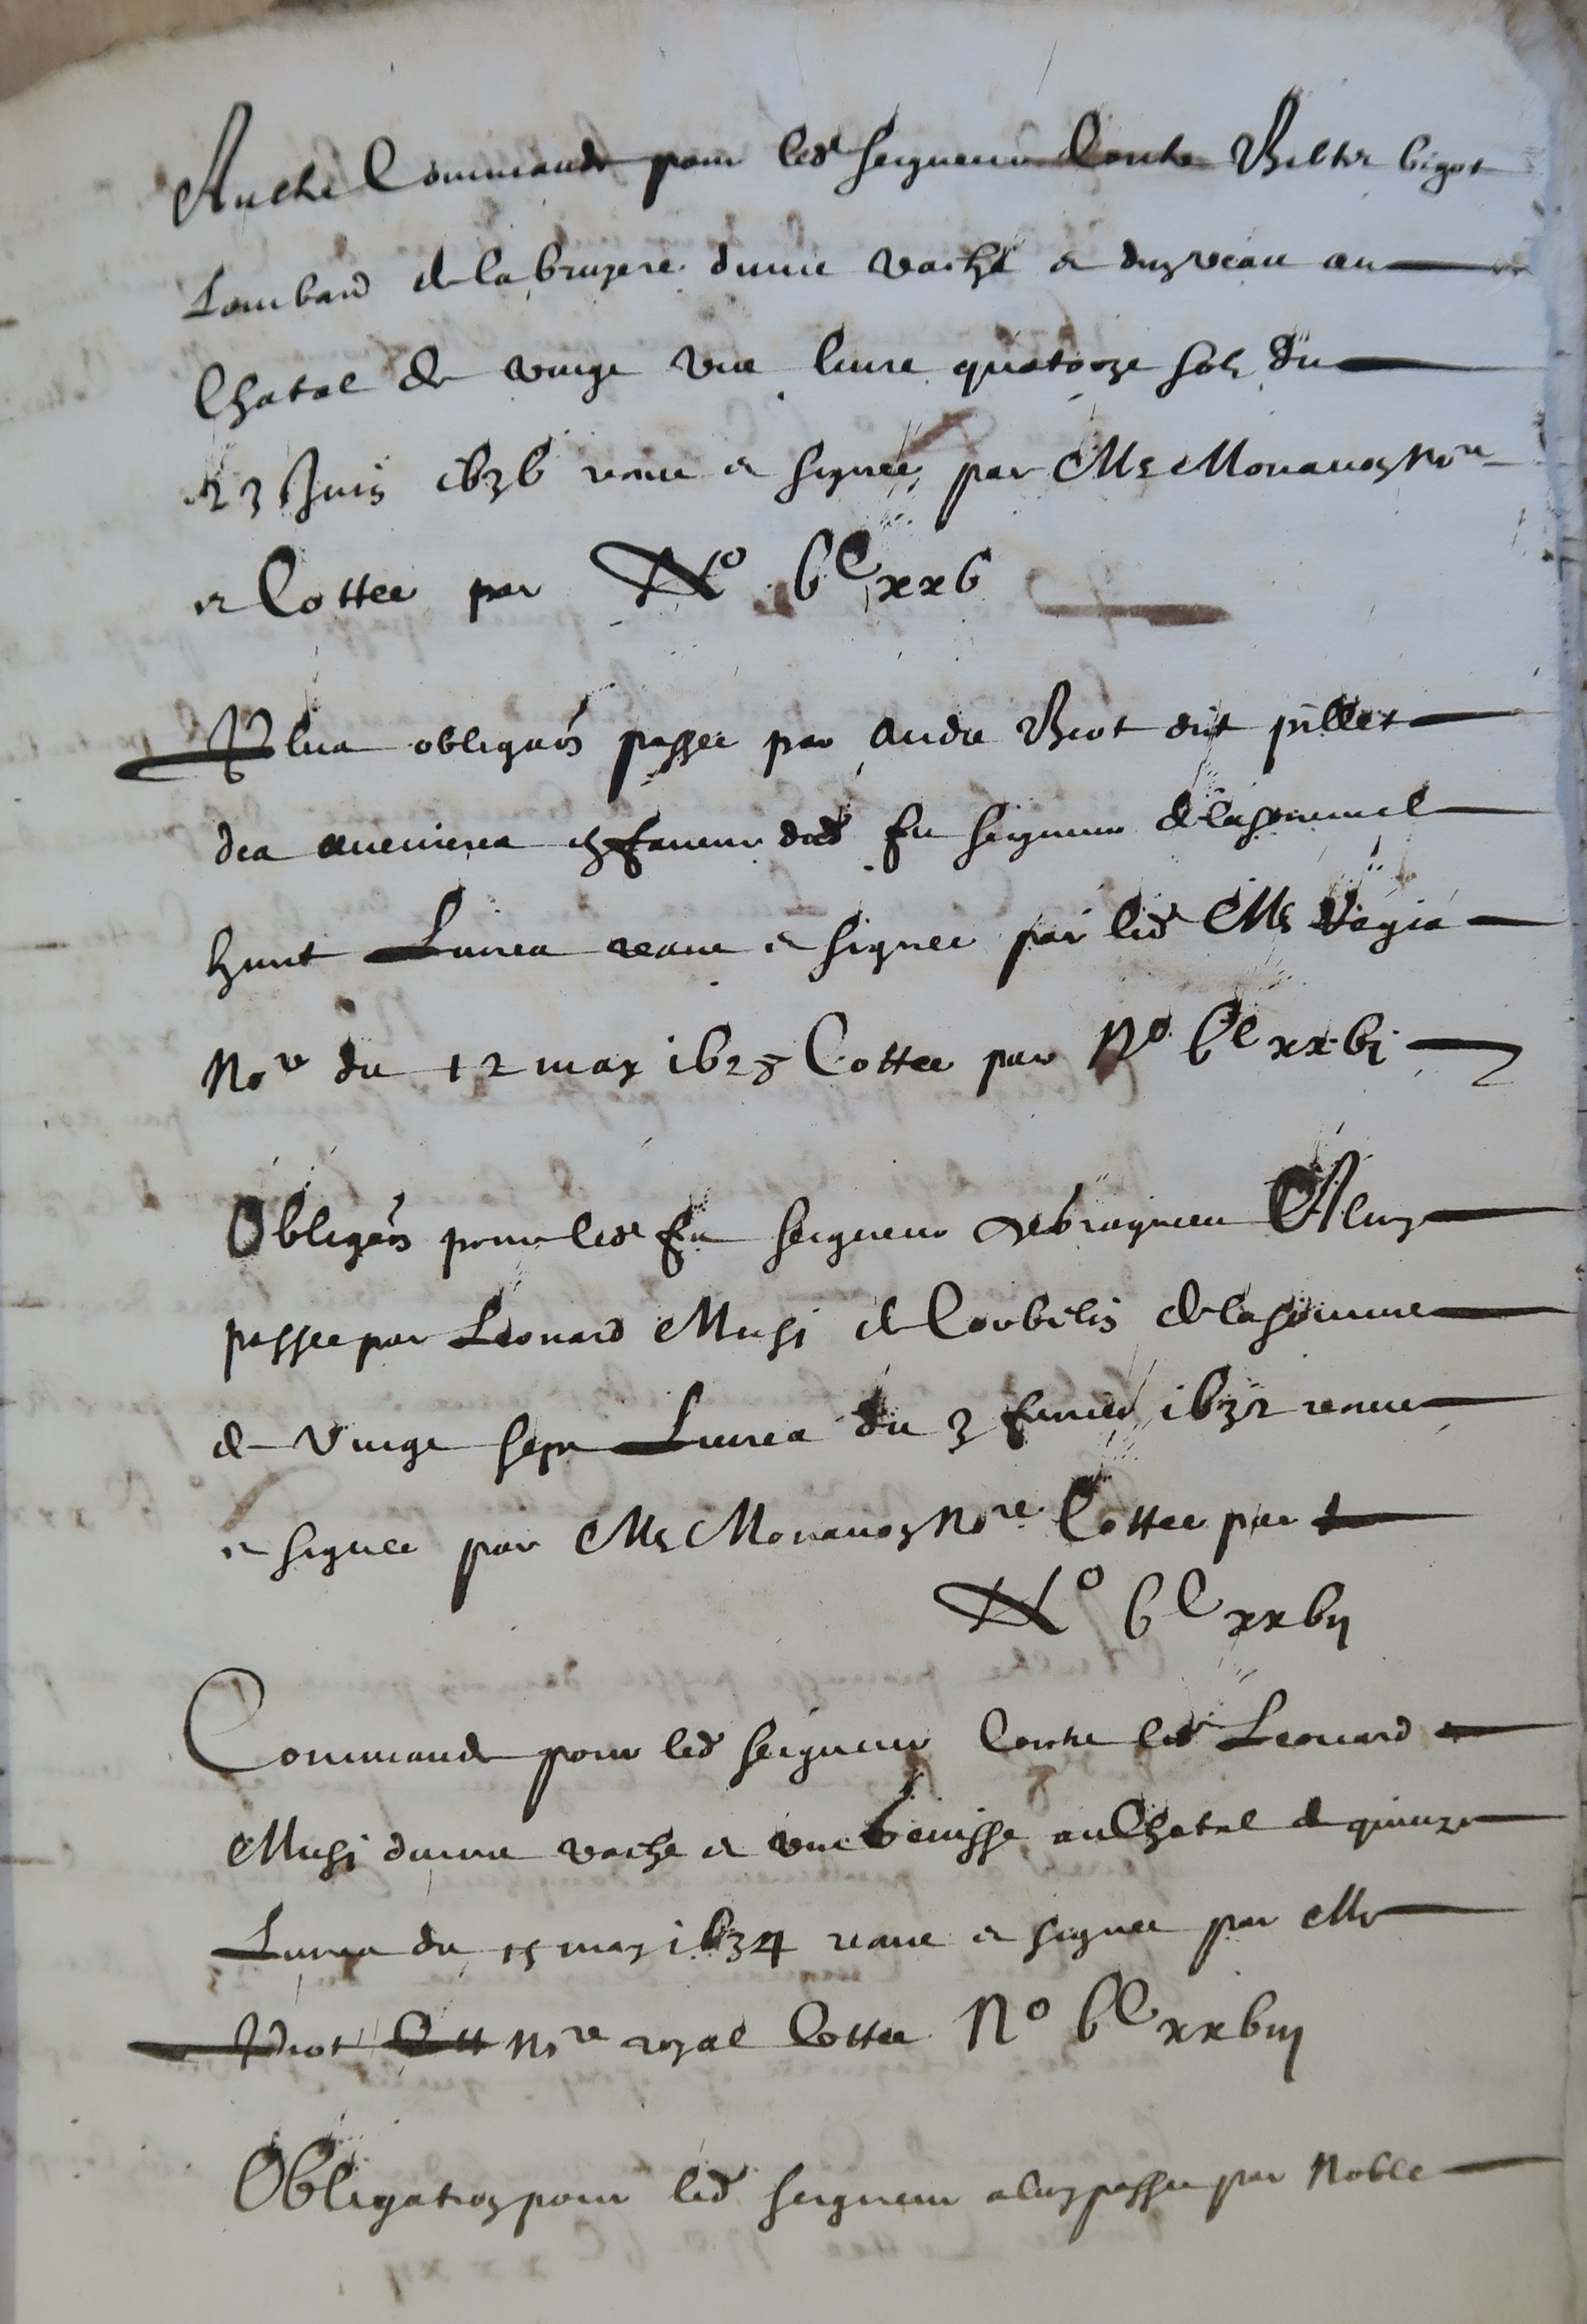 Aultre Commande pour led seigneur Contre Bolter bigot
Lombard de la bruyere dune vache et duy veau au
Chatal de vingt une livre quatorze solz du
23 Juin 1636 receue et signee par Me Monavoy Nore
et Cottee par No bc xxb
Plus obligaon passee par Andre Biot dit pillet
des avenieres en faveur dud feu seigneur de la somme de
huict Livres receue et signee par led Me Vegia
Nore du 12 may 1625 Cottee par No bc xxbi
Obligaon pour led feu seigneur de bragnieu A luy
passee par Leonard Musi de Corbelin de la somme
de vingt sept Livres du 3 fevrier 1632 receue
et signee par Me Monavoy Nore Cottee par
No bc xxbij
Commande pour led seigneur Contre led Leonard
Musi dune vache et une genisse au Chatal de quinze
Livres du 15 may 1634 receue et signee par Me
Nore royal Cottee No bc xxbiij
Obligation pour led seigneur a luy passee par Noble